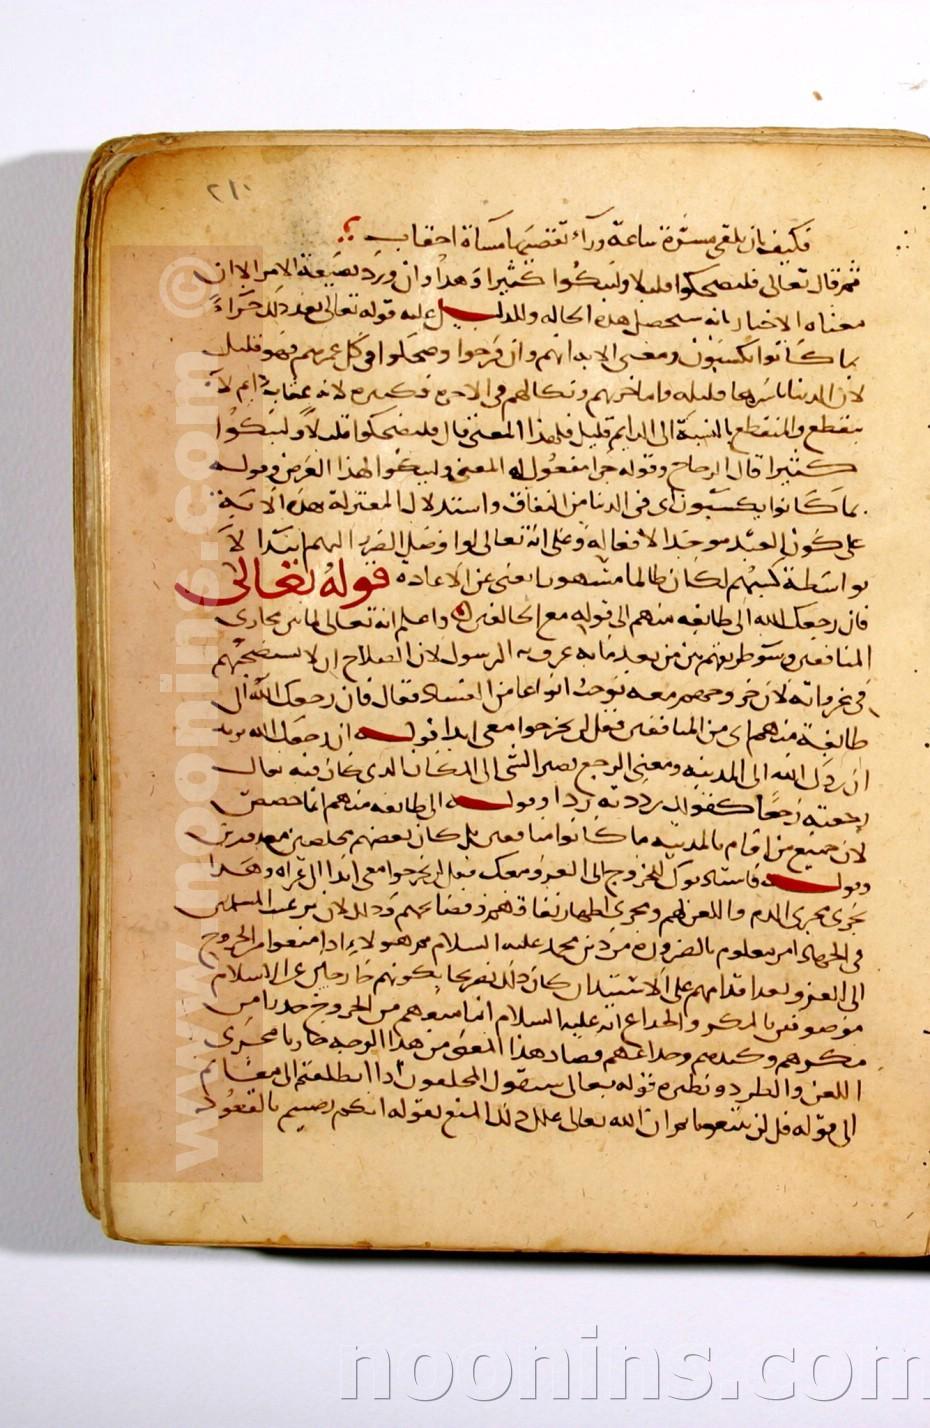 ٢١٠
فكيف بان يلقى مسرة ساعة وراء تقضيها مساة احقاب
ثم قال تعالى فليضحكوا قليلا وليبكوا كثيرا وهذا وان ورد بصيغة الامر الا ان
معناه الاخبار بانه ستحصل هذه الحاله والدليل عليه قوله تعالى بعد ذلك جزاء
بما كانوا يكسبون ومعنى الاية انهم وان فرحوا وضحكوا في كل عمرهم فهو قليل
لان الدنيا باسرها قليله واما حزنهم وبكاهم في الاخرة فكثيره لانه عقاب دايم لا
ينقطع والمنقطع بالنسبة الى الدايم قليل فلهذا المعنى قال فليضحكوا قليلا وليبكوا
كثيرا قال الزجاج وقوله جزا مفعول له المعنى وليبكوا لهذا الغرض وقوله
بما كانوا يكسبون اى فى الدنيا من النفاق واستدلال المعتزلة بهذه الاية
على كون العبد موجدا لافعاله وعلى انه تعالى لو اوصل الضرر اليهم ابتدا لا
بواسطة كسبهم لكان ظالما مشهور يغنى عن الاعاده قوله تعالى
فان رجعك الله الى طايفه منهم الى قوله مع الخالفين واعلم انه تعالى لما بين مخازى
المنافقين وسو طريقتهم بين من بعد ما به عرف به الرسول لان الصلاح ان لا يستصحبهم
فى غزواته لان خروجهم معه يوجب انواعا من الفساد فقال فان رجعك الله الى
طايفة منهم اى من المنافقين فقل لن تخرجوا معى ابدا قوله ان رجعك الله يريد
ان ردك الله الى المدينه ومعنى الرجع تصير الشى الى المكان الذى كان فيه يقال
رجعته رجعا كقولك رددته ردا وقوله الى طايفه منهم انما خصص
لان جميع من اقام بالمدينة ما كانوا منافقين بل كان بعضهم مخلصين معذورين
وقوله فاستاذنوك للخروج الى الغزو معك فقل لن تخرجوا معى ابدا الى غزاه وهذا
يجرى مجرى الذم واللعن لهم ومجرى اظهار نفاقهم وفضايحهم وذلك لان ترغيب المسلمين
فى الجهاد امر معلوم بالضرورة من دين محمد عليه السلام ثم هولاء اذا منعوا من الخروج
الى الغزو بعد اقدامهم على الاستيذان كان ذلك تصريحا بكونهم خارجين عن الاسلام
موصوفين بالمكر والخداع انه عليه السلام انما منعهم من الخروج حذرا من
مكرهم وكيدهم وخداعهم فصار هذا المعنى من هذا الوجه جاريا مجرى
اللعن والطرد ونظيره قوله تعالى سيقول المخلفون اذا انطلقتم الى مغانم
الى قوله قل لن تتبعونا ثم ان الله تعالى علل ذلك المنع بقوله انكم رضيتم بالقعود
www.noonins.com ©
noonins.com